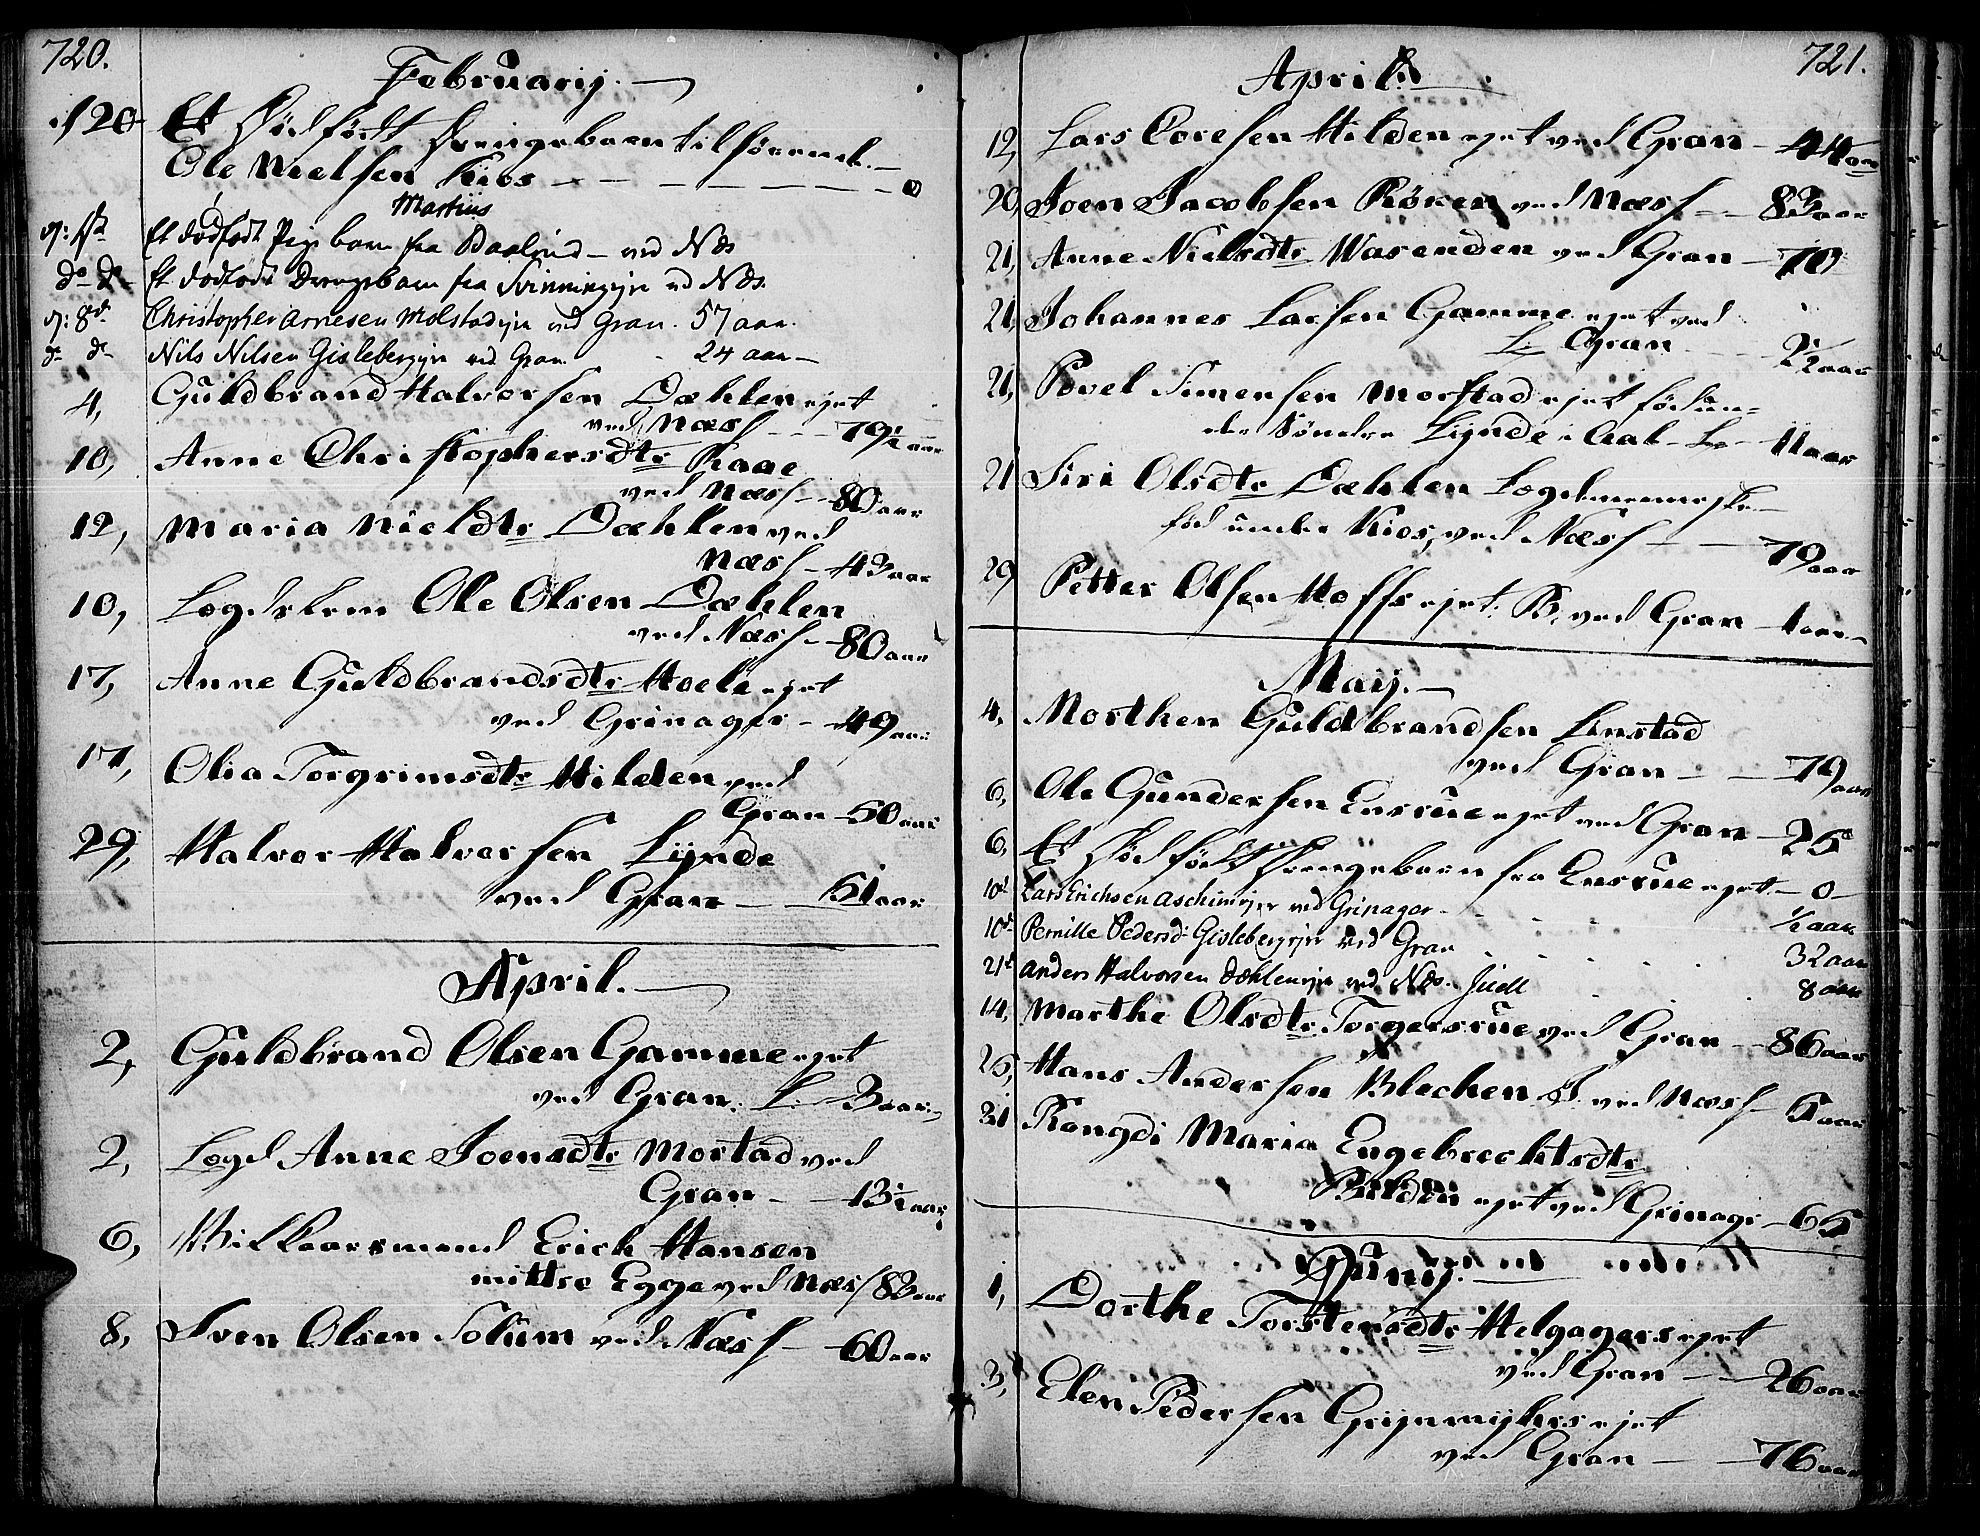 720.
Februarij.
120 Et Dödfödt Drengebarn tilhörende
Ole Nielsen Kios
Martius
Et dødfødt Pige barn fra - ved Næs
do do Et dødfødt Drengebarn fra Svinningejr ved Næs.
d: 8de Christopher Arnesen Molstadejr ved Gran. 57 aar.
do do Nils Nilsen Gislebergejr ved Gran 24 aar
4, Guldbrand Halvorsen Dæhlen ejet
ved Næss 79½ aar
10, Anne Christophersdtr Raae
ved Næss 80 aar
12, Maria Nieldtr Dæhlen ved
Næss 43 aar
10, Lægdslem Ole Olsen Dæhlen
ved Næss 80 aar
17, Anne Guldbrandsdtr Hoele ejet
ved Grinager 49 aar
17, Olia Torgrimsdtr Hilden ved
Gran 50 aar
29, Halvor Halversen Lynde
ved Gran 51 aar
April.
2, Guldbrand Olsen Gamme ejet
ved Gran. 3 aar
2, Lægd Anne Joensdtr Morstad ved
Gran 13½ aar
6, Wilkaarsmand Erich Hansen
mittre Egge ved Næss 83 aar
8, Sven Olsen Solum ved Næss 60 aar
721.
April
12, Lars Toresen Hilden ejet ved Gran 44 aar
20, Joen Jacobsen Röken ved Næss 83 aar
21, Anne Nielsdtr Wasenden ved Gran 70
21, Johannes Larsen Gamme ejet ved
Gran 2½ aar
21, Povel Simensen Morstad ejet fød un-
der Söndre Lynde i Aal 11 aar
21 Siri Olsdtr Dæhlen Lægdsmenneske
fød under Kios, ved Næss 79 aar
29 Petter Olsen Hoffs ejet. ved Gran 1 aar
Maij.
4, Morthen Guldbrandsen Linstad
ved Gran 79 aar
6, Ole Gundersen Ensrue ejet ved Gran 25
6, Et Dödfödt Drengebarn fra Ensrue ejet 0
10de Lars Erichsen Aschimejer ved Grinager ½ aar
10de Pernille Pedersd: Gislebergejr ved Gran 32 aar
21de Anders Halvorsen Dæhlenejr ved Næs. 8 aar
14, Marthe Olsdtr Torgersrue ved Gran 86 aar
25, Hans Andersen Blechen ved Næss 5 aar
31 Rangdi Maria Engebrechtsdtr
Bilden ejet ved Grinager 65
Junij.
1, Dorthe Torstensdtr Helgagers ejet
ved Gran 26 aar
3, Elen Pedersen Grijnmijhrs ejet
ved Gran 76 aar